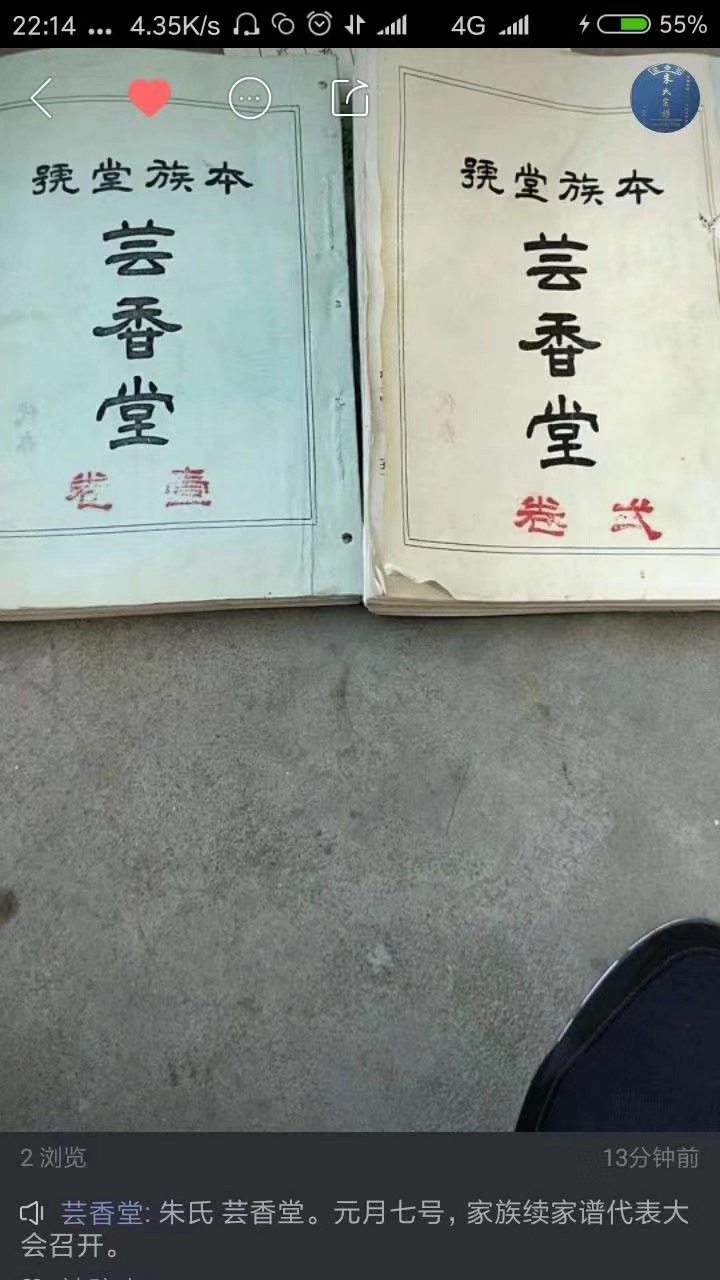 22:14 ... 4.35K/s 4G 55%
朱氏宗谱
本族堂號
芸香堂
卷壹
本族堂號
芸香堂
卷弍
2 浏览
13分钟前
芸香堂: 朱氏 芸香堂。元月七号，家族续家谱代表大
会召开。